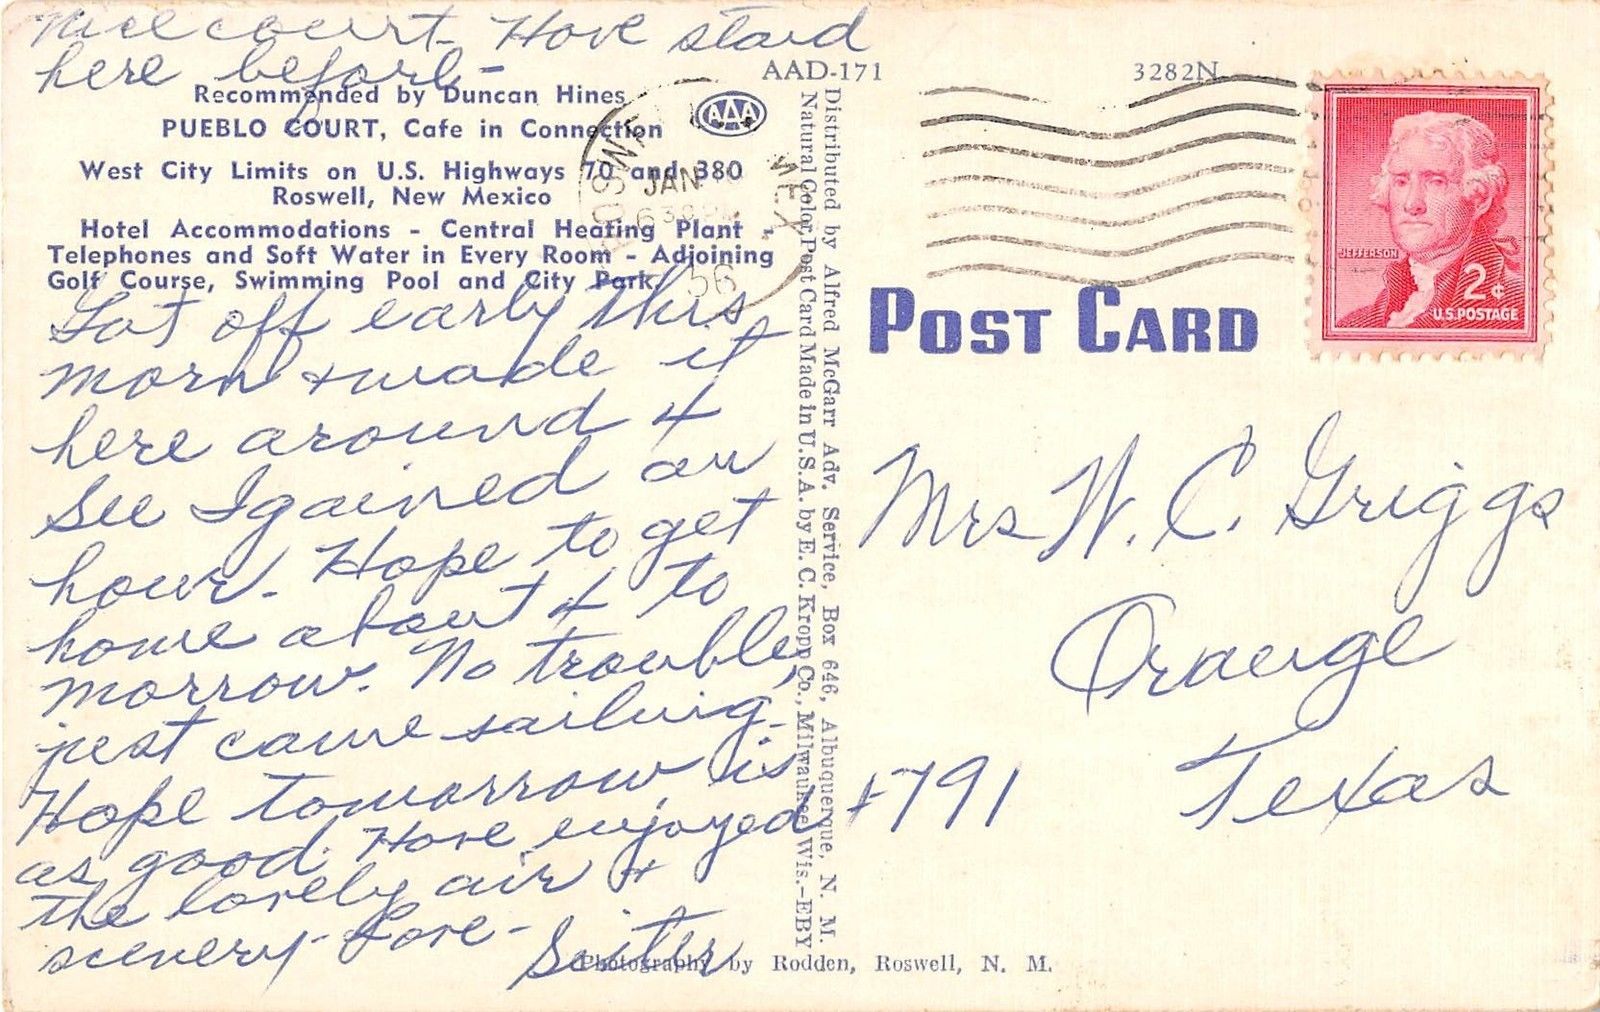 Nice court - Have staid
here before -
AAD-171
3282N
Recommended by Duncan Hines
AAA
PUEBLO COURT, Cafe in Connection
West City Limits on U.S. Highways 70 and 380
Roswell, New Mexico
Hotel Accommodations - Central Heating Plant -
Telephones and Soft Water in Every Room - Adjoining
Golf Course, Swimming Pool and City Park.
Got off early this
morn + made it
here around 4
See I gained an
hour. Hope to get
home about 4 to
morrow. No trouble,
jest came sailing.
Hope tomorrow is
as good. Have enjoyed
the lovely air +
scenery - Love -
Sister
Distributed by Alfred McGarr Adv. Service, Box 646, Albuquerque, N. M.
Natural Color Post Card Made in U.S.A. by E. C. Kropp Co., Milwaukee, Wis.-EBY
Photography by Rodden, Roswell, N. M.
ROSWELL
N. MEX
JAN
630PM
56
JEFFERSON
2¢
U.S. POSTAGE
POST CARD
Mrs W. C. Griggs
Orange
Texas
#791